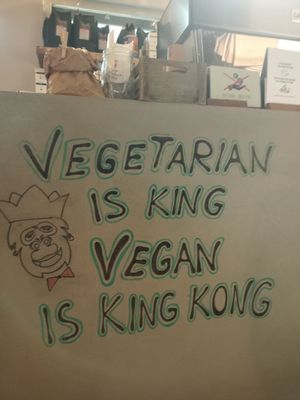 VEGETARIAN
IS KING
VEGAN
IS KING KONG